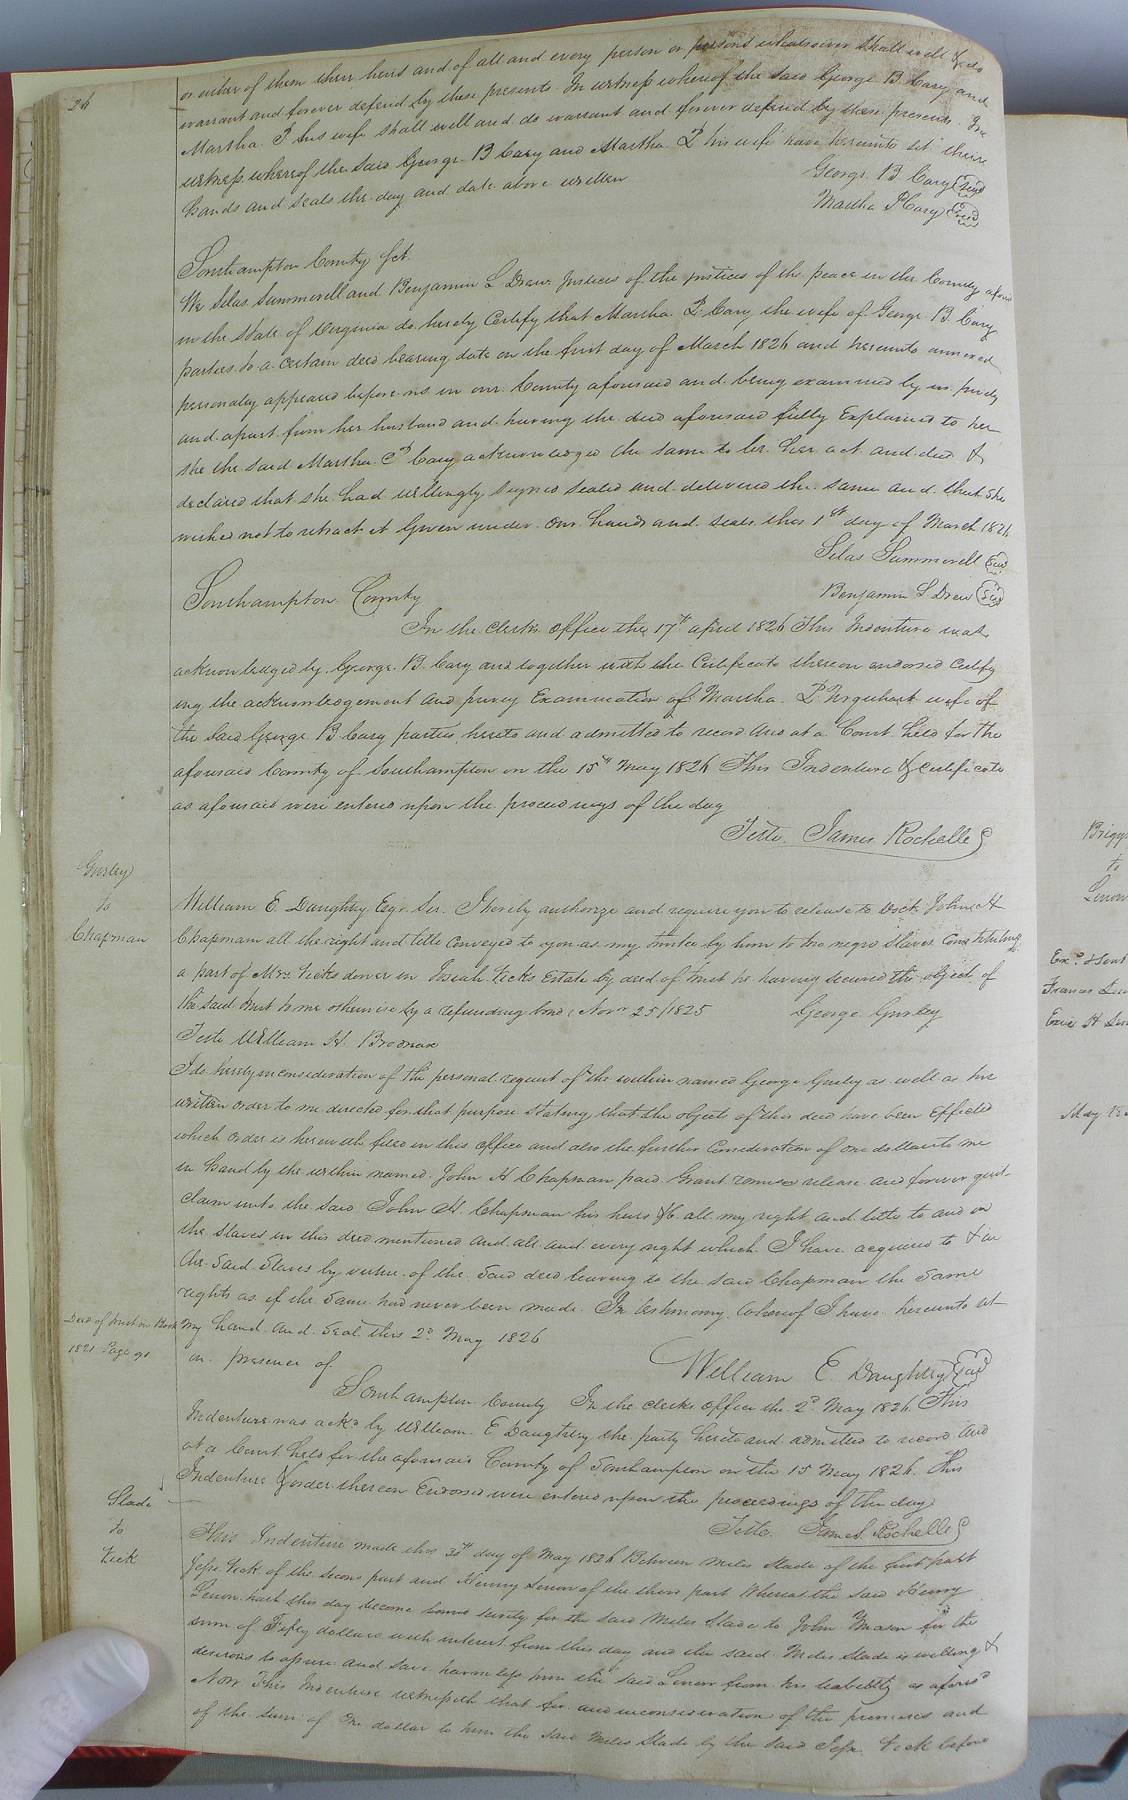 26
or either of them their heirs and of all and every person or persons whatsoever shall well & do
warrant and forever defend by these presents. In witness whereof the said George B Cary and
Martha P his wife shall well and do warrant and forever defend by these presents. In
witness whereof the said George B Cary and Martha P his wife have hereunto set their
hands and seals the day and date above written
George B Cary Seal
Martha P Cary Seal
Southampton County Sct.
We Silas Summerell and Benjamin L Drew Justices of the justices of the peace in the County afors
in the State of Virginia do hereby Certify that Martha P Cary the wife of George B Cary
parties to a certain deed bearing date on the first day of March 1826 and hereunto annexed
personaley appeared before us in our County aforesaid and being examined by us privily
and apart from her husband and having the deed aforesaid fully Explained to her
she the said Martha P Cary acknowledged the same to be her act and deed &
declared that she had willingly signed sealed and delivered the same and that she
wished not to retract it Given under our hands and seals this 1st day of March 1826
Silas Summerell Seal
Benjamin L Drew Seal
Southampton County
In the clerks office the 17th april 1826 This Indenture was
acknowledged by George B Cary and together with the Certificate thereon endorsed Certify
ing the acknowledgement and privy Examination of Martha P Urquhart wife of
the said George B Cary parties hereto and admitted to record And at a Court held for the
aforesaid County of Southampton on the 15th May 1826 This Indenture & Certificate
as aforesaid were entered upon the proceedings of the day
Teste James Rochelle
Gurley
to
Chapman
William E. Daughtry Esqr. Sir. I hereby authorize and require you to release to Doct. John H
Chapman all the right and title Conveyed to you as my trustee by him to two negro slaves Constituting
a part of Mrs. Vicks dower in Josiah Vicks Estate by deed of trust he having secured the object of
the said trust to me otherwise by a refunding bond Novr 25/1825 George Gurley
Teste William H. Brodnax
I do hereby in consideration of the personal request of the within named George Gurley as well as his
written order to me directed for that purpose stating that the objects of this deed have been Effected
which order is herewith filed in this office and also the further Consideration of one dollar to me
in hand by the within named John H Chapman paid Grant remise release and forever quit
claim unto the said John H. Chapman his heirs &c all my right and title to and in
the slaves in this deed mentioned and all and every right which I have acquired to & in
the said slaves by virtue of the said deed leaving to the said Chapman the same
rights as if the same had never been made. In testimony whereof I have hereunto set
Deed of trust in Book
1821 Page 91
my hand and seal this 2d May 1826
in presence of
William E. Daughtry Seal
Southampton County In the clerks office the 2d May 1826 This
Indenture was ackd by William E Daughtrey the party hereto and admitted to record And
at a Court held for the aforesaid County of Southampton on the 15 May 1826. This
Indenture & order thereon Endorsed were entered upon the proceedings of the day
Teste James Rochelle
Slade
to
Vick
This Indenture made this day of May 1826 Between Miles Slade of the first part
Jesse Vick of the second part and Henry Lenow of the third part Whereas the said Henry
Lenow hath this day become bound security for the said Miles Slade to John Mason for the
sum of Fifty dollars with interest from this day and the said Miles Slade is willing &
desirous to assure and save harmless him the said Lenow from his liability as aforesd
Now This Indenture witnesseth that for and in consideration of the premises and
of the sum of One dollar to him the said Miles Slade by the said Jesse Vick before
Briggs
to
Lenow
May 18